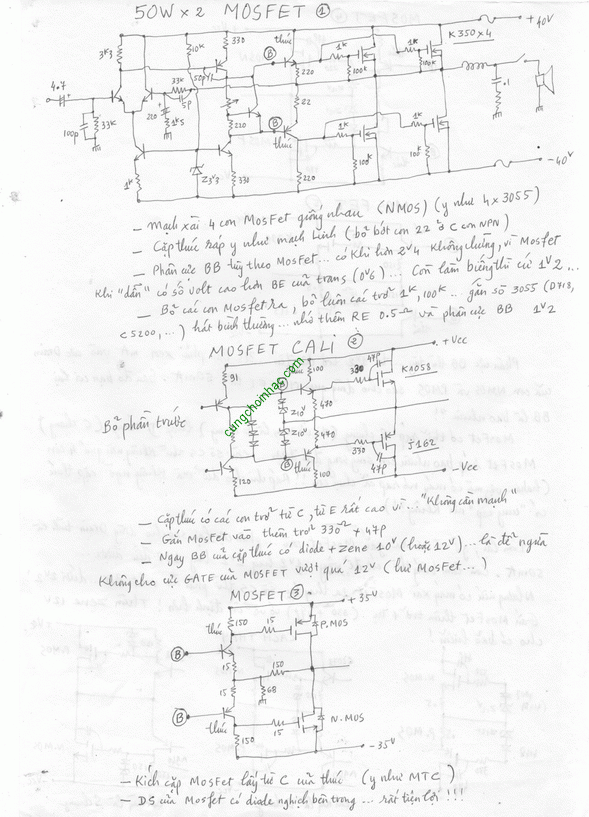 50W x 2 MOSFET ①
thúc
K350x4
+40V
3K3
10K
330
B
1K
1K
100K
100K
220
33K
50pF
5p
4.7
100p
33K
220
1K5
22
.1
220
B
thúc
1K
1K
1K
Z3V3
330
220
100K
100K
-40V
– Mạch xài 4 con MosFet giống nhau (NMOS) (y như 4x3055)
– Cặp thúc ráp y như mạch Linh (bỏ bớt con 22 ở C con NPN)
– Phân cực BB tùy theo MosFet... có khi hơn 2V4 không chừng, vì Mosfet
Khi "dẫn" có số volt cao hơn BE của trans (0V6)... Còn làm biếng thì cứ 1V2...
– Bỏ các con Mosfet ra, bỏ luôn các trở 1K, 100K.. gắn sò 3055 (D718,
C5200,...) hát bình thường... nhớ thêm RE 0.5Ω và phân cực BB 1V2
MOSFET CALI ②
+Vcc
91
100
47P
330
K1058
470
Z10V
Z10V
470
Bộ phần trước
B
thúc
330
J162
47P
120
100
-Vcc
cungchoinhac.com
– Cặp thúc có các con trở từ C, từ E rất cao vì... "Không cần mạnh"
– Gắn MosFet vào thêm trở 330 + 47P
– Ngay BB của cặp thúc có diode + Zene 10V (hoặc 12V)... là để ngừa
Không cho cực GATE của MOSFET vượt quá 12V (hư MosFet...)
MOSFET ③
+35V
thúc
150
15
P.MOS
B
15
150
15
68
B
thúc
15
N.MOS
150
-35V
– Kích cặp MosFet lấy từ C của thúc (y như MTC)
– DS của Mosfet có diode nghịch bên trong... rất tiện lợi!!!